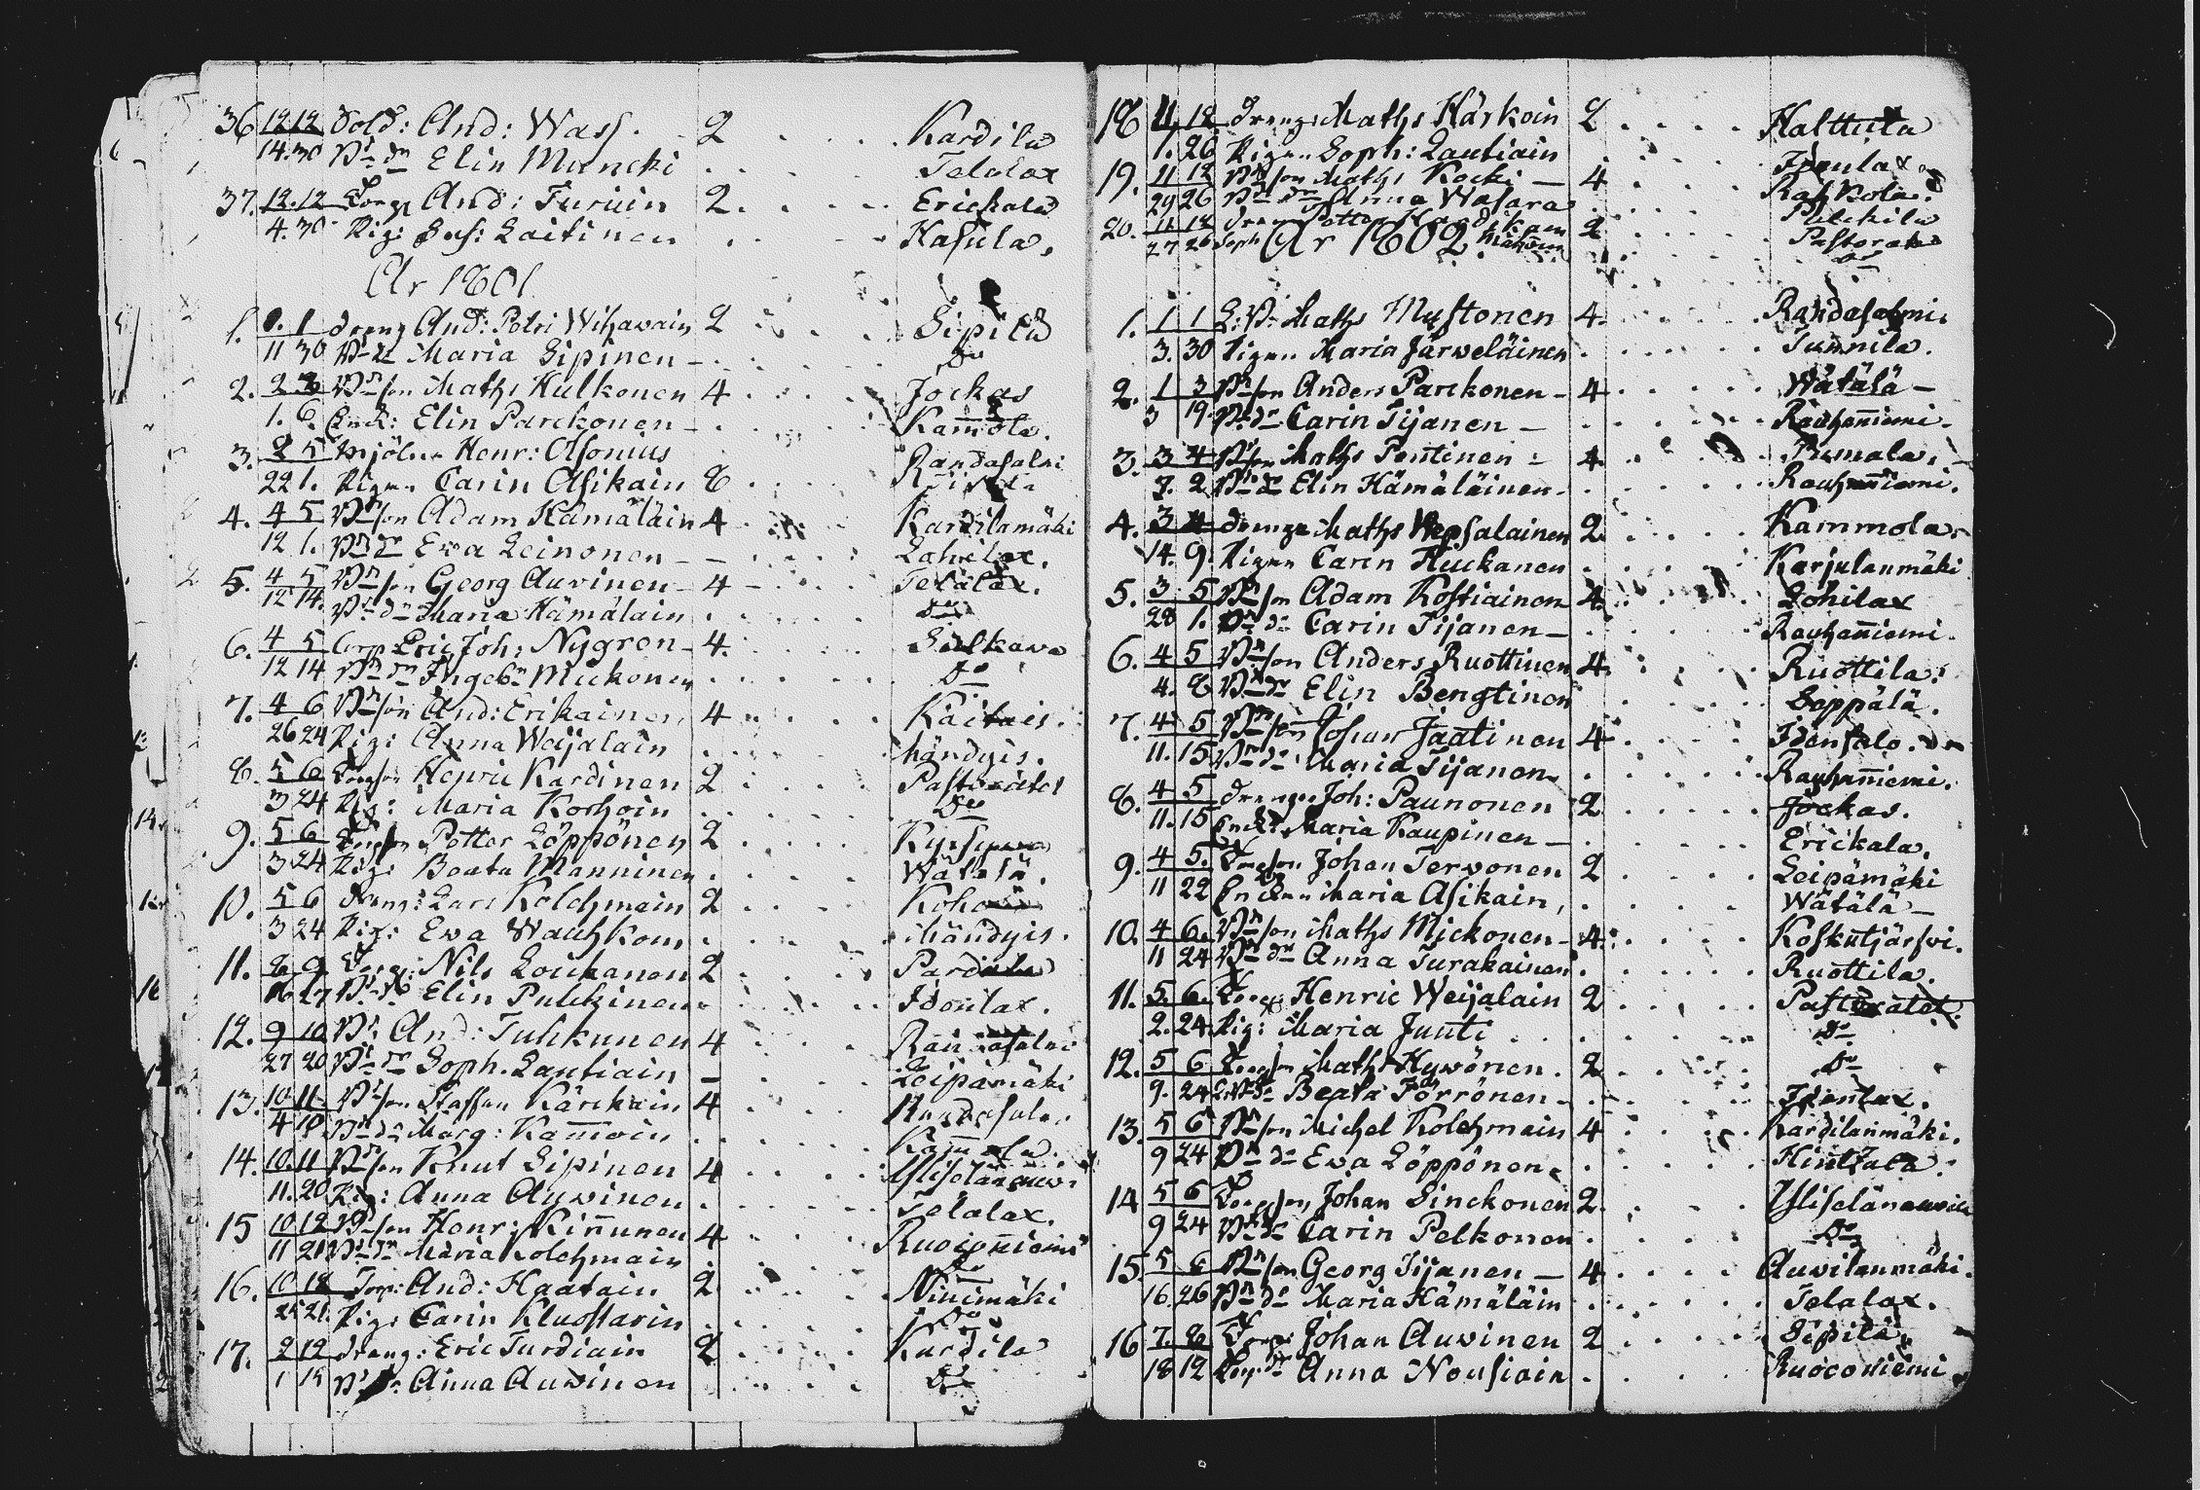 36 12 12 Sold: And: Wass. 2 Kardila
14. 30 Bd: dr Elin Muncki Telalax
37. 12. 12 Torp And: Turuin 2 Erickala
4. 30 Pig: Sus: Laitinen Hasula.
År 1801
1. 1. 1 dreng And: Petri Wihavain 2 Sipilä
11 30 Bd: dr Maria Sipinen Do
2. 2 Bd: son Maths Hulkonen 4 Jockas
1. 6. Enck: Elin Parckonen Kam̄ola.
3. 2 5 mjöln Henr: Asonius Randasalmi
22 1. Pigan Carin Asikain 8
4. 4 5 Bd: son Adam Hämäläin 4 Kardilamäki
12 1. Bd: dr Ewa Leinonen Lohilax.
5. 4 5 Bd: son Georg Auvinen 4 Telalax.
12 14. Bd: dr Maria Hämäläin Do
6. 4 5 Corp Eric Joh: Nygren 4. Sulkava
12 14 Bd: dr Ingebr Mickonen Do
7. 4 6 Bd: son And: Erikainen 4 Kaitais.
26 24 Pig: Anna Weijalain Mändyis.
8. 5 6 Torpson Henric Kardinen 2 Pastoratet
3 24 Pig: Maria Korhoin Do
9. 5 6 Torpson Petter Löppönen 2
3 24 Pig: Beata Manninen Wätälä.
10. 5 6 dreng: Lars Kolehmain 2
3 24 Pig: Ewa Wauhkoin Mändyis.
11. 8 9 Torp: Nils Loickanen 2
16 27 Bd: dr Elin Pulckinen Idenlax.
12. 9 10 Bd: And: Tuhkunen 4 Randasalmi
27 20 Bd: dr Soph. Lautiain Leipämäki
13. 10 11 Bd: son Staffan Kärckäin 4 Randasalm.
4 18 Bd: dr Marg: Kam̄oin Kam̄ola.
14. 10. 11 Bd: son Knut Sipinen 4
11. 20 Pig: Anna Aywinen Telalax.
15 10 12 Bd: son Henr: Kin̄unen 4
11 21 Bd: dr Maria Kolehmain Do
16. 10 18 Torp: And: Haatain 2 Ninimäki
25 21. Pig: Carin Kluostarin Do
17. 2 12 dreng: Eric Turdiain 2 Kardila
1 15 Bd: dr Anna Auvinen Do
18 11 12 drengen Maths Härkoin 2 Halttula
1. 26 Pigan Soph: Lautiain Idenlax
19. 11 12 Bd: son Maths Kocki 4
29 26 Bd: dr Anna Wasara
20. 11 12 dreng Petter 2 Pastoratet
27 26 Soph: Do
År 1802
1. 1 1 L: Bd: Maths Mustonen 4. Randasalmi.
3. 30 Pigan Maria Järweläinen Tunnila.
2. 1 3 Bd: son Anders Parckonen 4 Wätälä
3 19. Bd: dr Carin Tijanen Rauhan̄iemi.
3. 3 4 Bd: son Maths Pentinen 4 Pumala.
7. 2 Bd: dr Elin Hämäläinen Rauhan̄iemi.
4. 3 4 drengen Maths Wepsalainen 2 Kammola.
14. 9. Pigan Carin Huckanen Karjulanmäki
5. 3 5 Bd: son Adam Kostiainen 4 Lohilax
28 1. Bd: dr Carin Tijanen Rauhan̄iemi.
6. 4 5 Bd: son Anders Ruottinen 4 Ruottila.
4. 8 Bd: dr Elin Bengtinen Soppälä.
7. 4 5 Bd: son Johan Jäätinen 4 Idensalo.
11. 15 Bd: dr Maria Tijanen Rauhan̄iemi.
8. 4 5 drengen Joh: Paunonen 2 Jockas.
11. 15 Enck: Maria Kaupinen Erickala.
9. 4 5. Torpson Johan Terwonen 2 Leipämäki
11 22 Enckan Maria Asikain, Wätälä
10. 4 6. Bd: son Maths Mickonen 4. Koskutjärfvi.
11 24 Bd: dr Anna Turakainen Ruottila.
11. 5. 6. Torp: Henric Weijalain 2 Pastoratet.
2. 24. Pig: Maria Junti Do
12. 5 6 Torpson Maths Hywönen. 2 Do
9. 24 Bd: dr Beata Törrönen Idenlax.
13. 5 6 Bd: son Michel Kolehmain 4 Kardilanmäki.
9 24 Bd: dr Ewa Löppönen
14 5 6 Torpson Johan Sinckonen 2
9 24 Bd: dr Carin Pelkonen Do
15. 5 6 Bd: son Georg Tijanen 4 Auwilanmäki.
16. 26 Bd: dr Maria Hämäläin Telalax.
16 7. 8 Torp: Johan Auwinen 2 Sipilä
18 12 Torp: dr Anna Nousiain Ruocomiemi